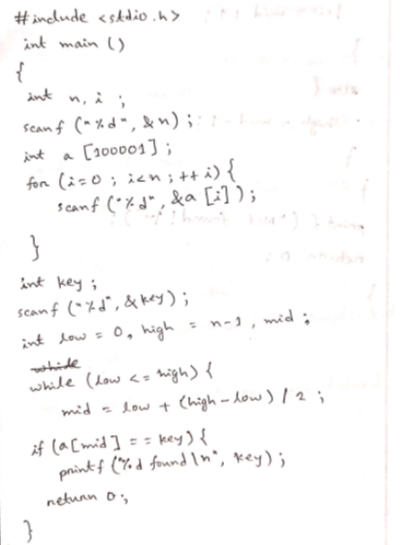 #include <stdio.h>
int main ()
{
int n, i ;
scanf ("%d", &n) ;
int a [100001] ;
for (i=0 ; i<n ; ++i) {
scanf ("%d", &a [i] ) ;
}
int key ;
scanf ("%d", &key) ;
int low = 0, high = n-1, mid ;
while
while (low <= high) {
mid = low + (high - low) / 2 ;
if (a[mid] == key) {
printf ("%d found \n", key) ;
return 0 ;
}